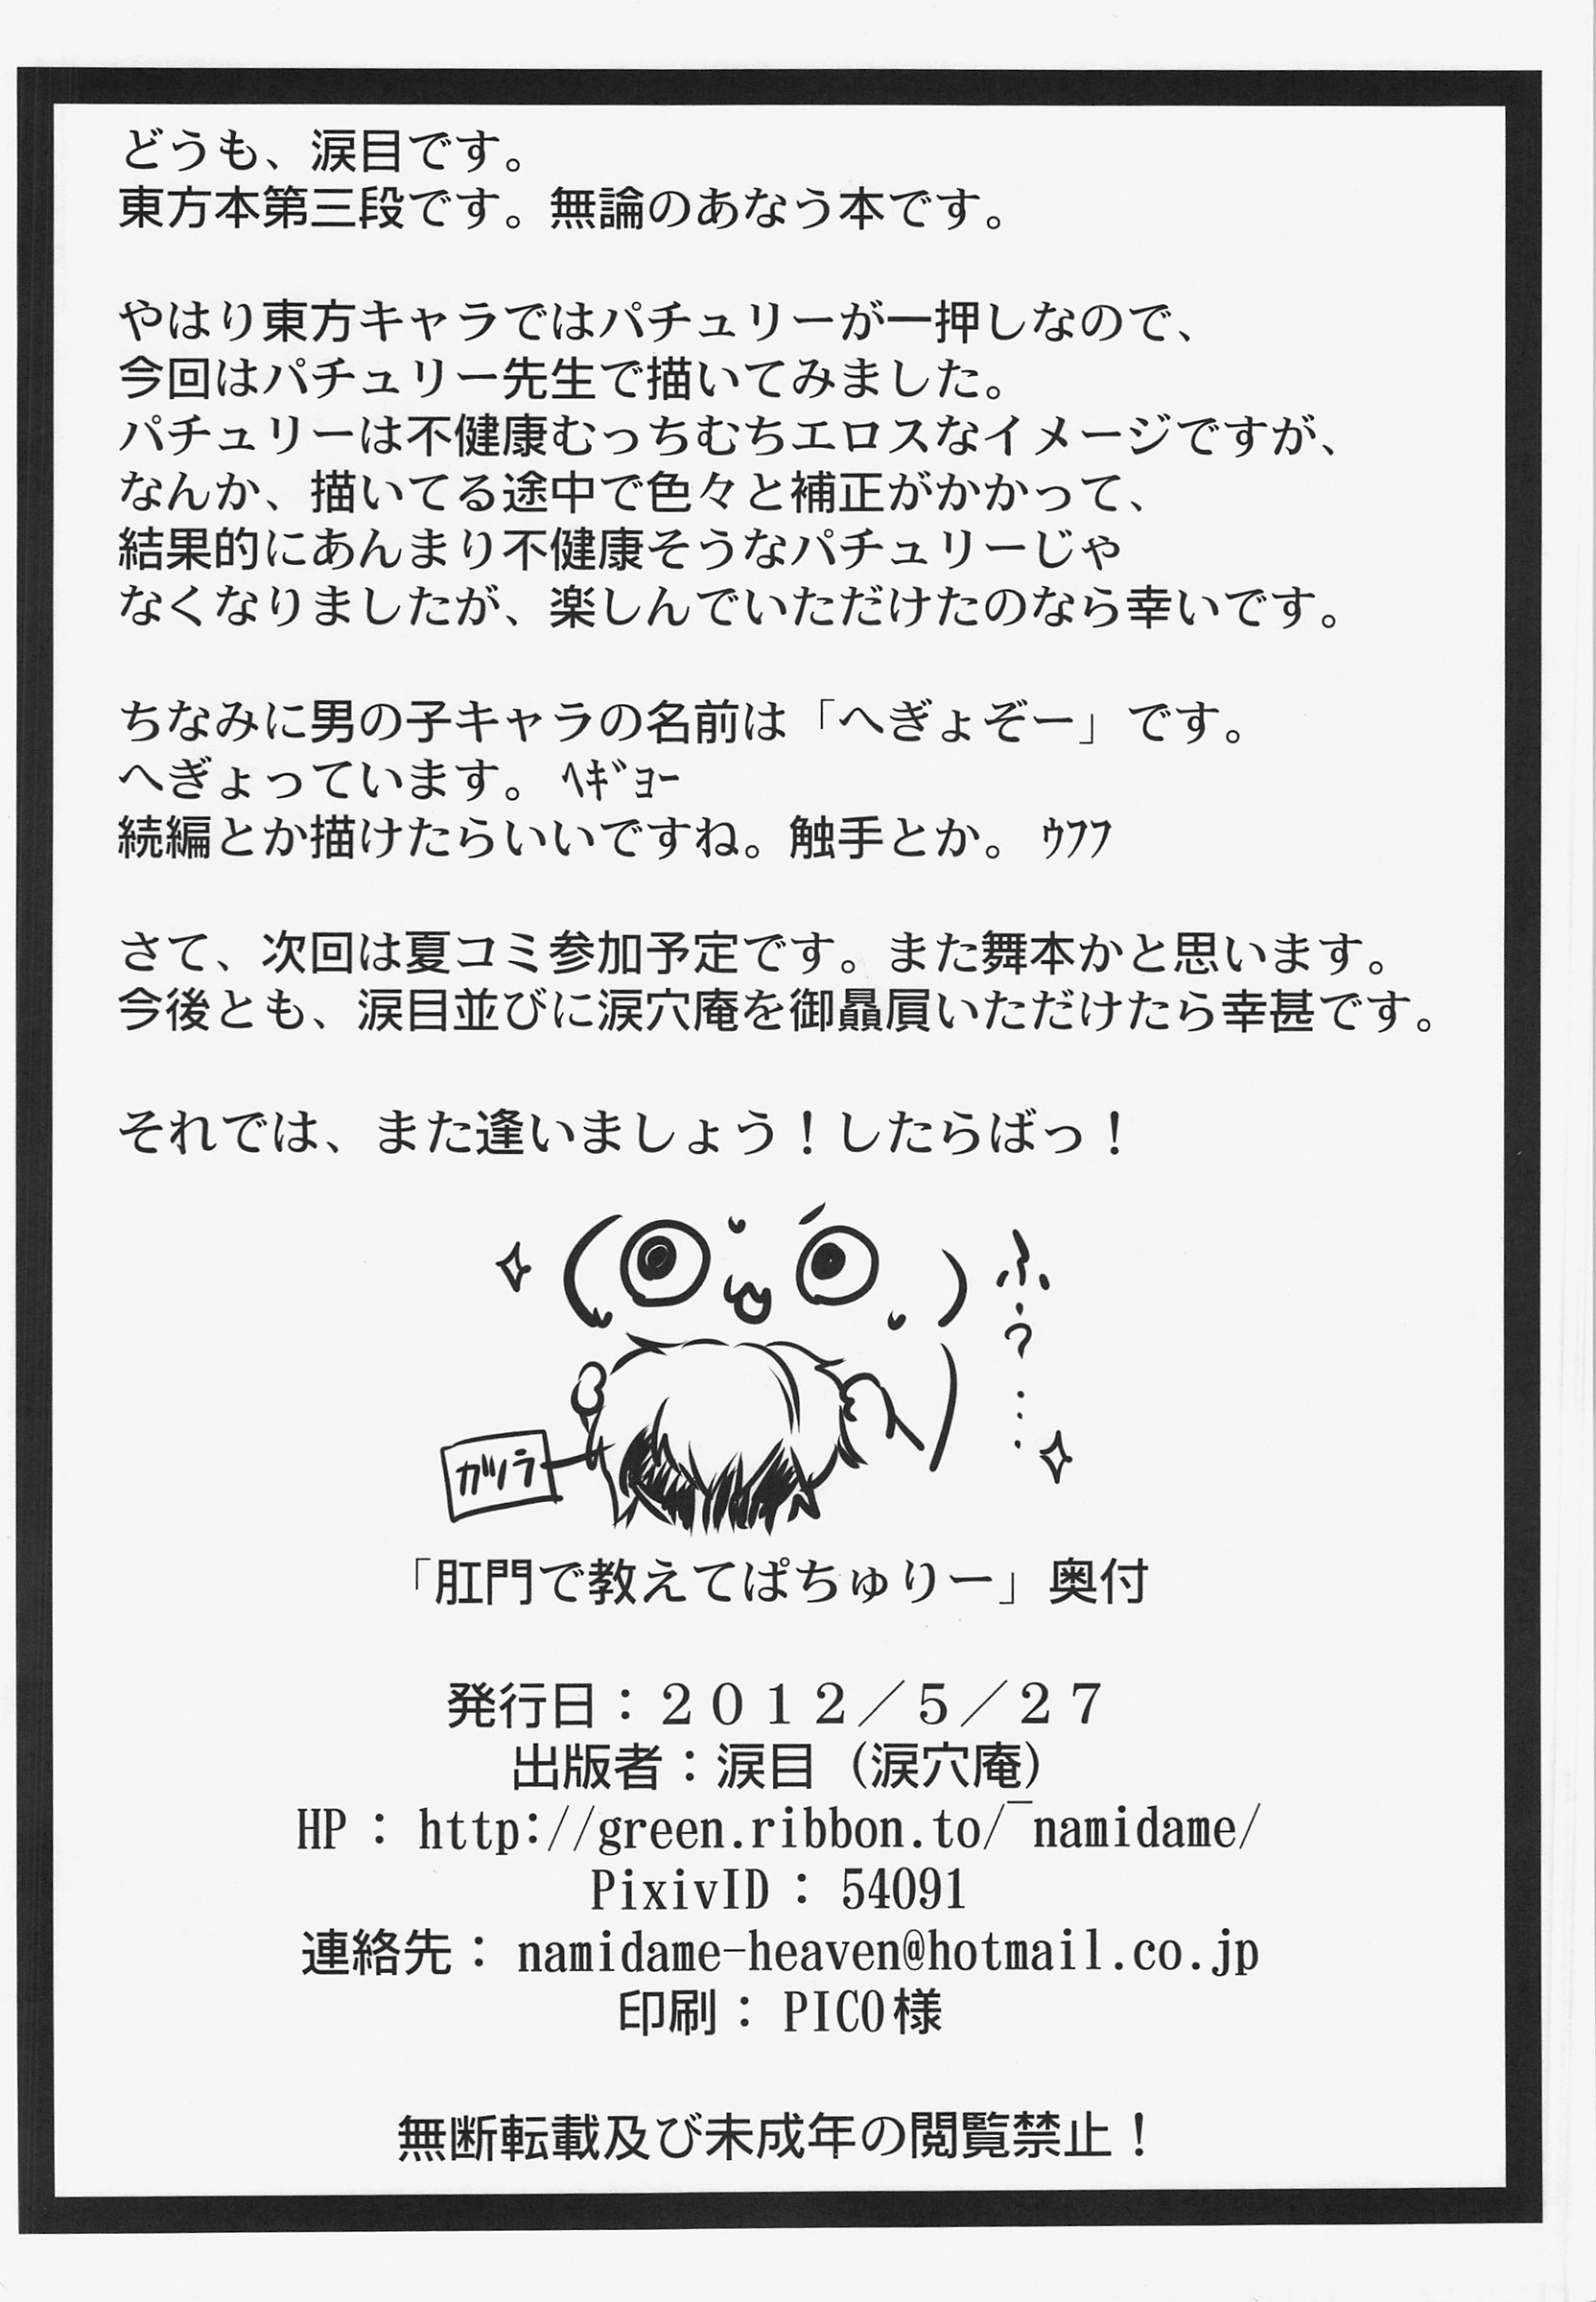 どうも、涙目です。
東方本第三段です。無論のあなう本です。
やはり東方キャラではパチュリーが一押しなので、
今回はパチュリー先生で描いてみました。
パチュリーは不健康むっちむちエロスなイメージですが、
なんか、描いてる途中で色々と補正がかかって、
結果的にあんまり不健康そうなパチュリーじゃ
なくなりましたが、楽しんでいただけたのなら幸いです。
ちなみに男の子キャラの名前は「へぎょぞー」です。
へぎょっています。 ﾍｷﾞｮｰ
続編とか描けたらいいですね。触手とか。 ｳﾌﾌ
さて、次回は夏コミ参加予定です。また舞本かと思います。
今後とも、涙目並びに涙穴庵を御贔屓いただけたら幸甚です。
それでは、また逢いましょう！したらばっ！
ふぅ…
ガツラ
「肛門で教えてぱちゅりー」奥付
発行日：２０１２／５／２７
出版者：涙目（涙穴庵）
HP : http://green.ribbon.to/‾namidame/
PixivID : 54091
連絡先： namidame-heaven@hotmail.co.jp
印刷： PICO様
無断転載及び未成年の閲覧禁止！